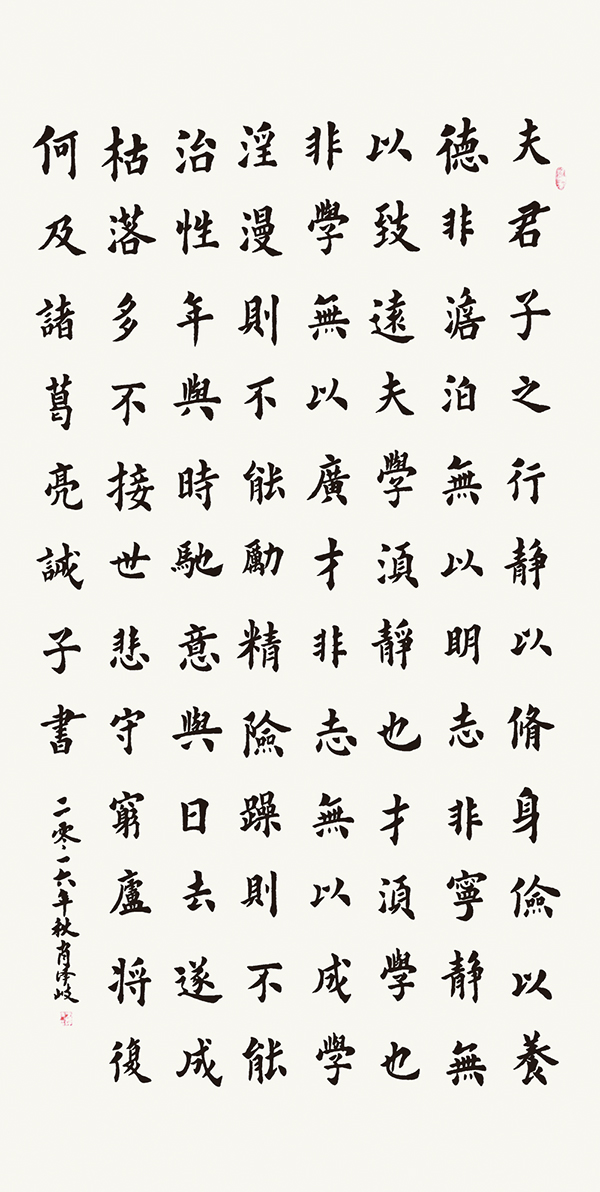 夫君子之行静以脩身儉以養
德非澹泊無以明志非寧静無
以致遠夫學須靜也才須學也
非學無以廣才非志無以成學
淫漫則不能勵精險躁則不能
治性年與時馳意與日去遂成
枯落多不接世悲守窮廬将復
何及諸葛亮誡子書
二零一六年秋肖泽岐